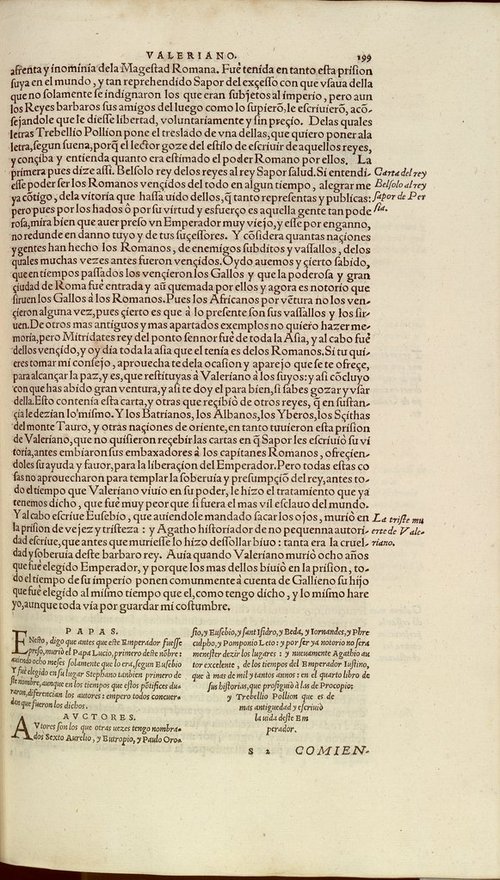 VALERIANO. 199
afrenta y inominia dela Magestad Romana. Fue tenida en tanto esta prision
suya en el mundo, y tan reprehendido Sapor del excesso con que vsaua della
que no solamente se indignaron los que eran subjetos al imperio, pero aun
los Reyes barbaros sus amigos del luego como lo supierõ, le escriuierõ, acõ-
sejandole que le diesse libertad, voluntariamente y sin preçio. Delas quales
letras Trebellio Pollion pone el treslado de vna dellas, que quiero poner ala
letra, segun suena, porq̃ el lector goze del estilo de escriuir de aquellos reyes,
y conçiba y entienda quanto era estimado el poder Romano por ellos. La
primera pues dize assi. Belsolo rey delos reyes al rey Sapor salud. Si entendi-
Carta del rey
Belsolo al rey
Sapor de Per
sia.
esse poder ser los Romanos vençidos del todo en algun tiempo, alegrar me
ya cõtigo, dela vitoria que hassa uido dellos, q̃ tanto representas y publicas:
pero pues por los hados ò por su virtud y esfuerço es aquella gente tan pode
rosa, mira bien que auer preso vn Emperador muy viejo, y esse por enganno,
no redunde en danno tuyo y de tus suçessores. Y cõsidera quantas naçiones
y gentes han hecho los Romanos, de enemigos subditos y vassallos, delos
quales muchas vezes antes fueron vençidos. Oydo auemos y çierto sabido,
que en tiempos passados los vençieron los Gallos y que la poderosa y gran
çiudad de Roma fuè entrada y aũ quemada por ellos y agora es notorio que
siruen los Gallos à los Romanos. Pues los Africanos por vẽtura no los ven-
çieron alguna vez, pues çierto es que à lo presente son sus vassallos y los sir-
uen. De otros mas antiguos y mas apartados exemplos no quiero hazer me-
moria, pero Mitridates rey del ponto sennor fuè de toda la Asia, y al cabo fuè
dellos vençido, y oy dia toda la asia que el tenia es delos Romanos. Si tu qui-
eres tomar mi consejo, aprouecha te dela ocasion y aparejo que se te ofreçe,
para alcançar la paz, y es, que restituyas à Valeriano à los suyos: y asi cõcluyo
con que has abido gran ventura, y asi te doy el para bien, si sabes gozar y vsar
della. Esto contenia esta carta, y otras que reçibio de otros reyes, q̃ en sustan-
çia le dezian lo mismo. Y los Batrianos, los Albanos, los Yberos, los Sçithas
del monte Tauro, y otras naçiones de oriente, en tanto tuuieron esta prision
de Valeriano, que no quisieron reçebir las cartas en q̃ Sapor les escriuiò su vi
toria, antes embiaron sus embaxadores à los capitanes Romanos, ofreçien-
doles su ayuda y fauor, para la liberaçion del Emperador. Pero todas estas co
sas no aprouecharon para templar la soberuia y presumpçiõ del rey, antes to-
do el tiempo que Valeriano viuio en su poder, le hizo el tratamiento que ya
tenemos dicho, que fuè muy peor que si fuera el mas vil esclauo del mundo.
Y al cabo escriue Eusebio, que auiendole mandado sacar los ojos, muriò en
La triste mu
erte de Vale-
riano.
la prision de vejez y tristeza: y Agatho historiador de no pequenna autori-
dad escriue, que antes que muriesse lo hizo dessollar biuo: tanta era la cruel-
dad y soberuia deste barbaro rey. Auia quando Valeriano muriò ocho años
que fuè elegido Emperador, y porque los mas dellos biuiò en la prision, to-
do el tiempo de su imperio ponen comunmente à cuenta de Gallieno su hijo
que fuè elegido al mismo tiempo que el, como tengo dicho, y lo mismo hare
yo, aunque toda via por guardar mi costumbre.
PAPAS.
ENesto, digo que antes que este Emperador fuesse
preso, muriò el Papa Lucio, primero deste nõbre:
auiendo ocho meses solamente que lo era, segun Eusebio
Y fuè elegido en su lugar Stephano tambien primero de
ste nombre, aunque en los tiempos que estos põtifices du-
raron, diferencian los autores: empero todos concuer-
dan que fueron los dichos.
AVCTORES.
AVtores son los que otras vezes tengo nombra-
dos Sexto Aurelio, y Eutropio, y Paulo Oro-
sio, y Eusebio, y sant Isidro, y Beda, y Iornandes, y Phre
culpho, y Pomponio Leto: y por ser ya notorio no sera
menester dezir los lugares: y nueuamente Agathio au
tor excelente, de los tiempos del Emperador Iustino,
que à mas de mil y tantos annos: en el quarto libro de
sus historias, que prosiguiò à las de Procopio:
y Trebellio Pollion que es de
mas antiguedad y escriuiò
la uida deste Em
perador.
S 2 COMIEN-